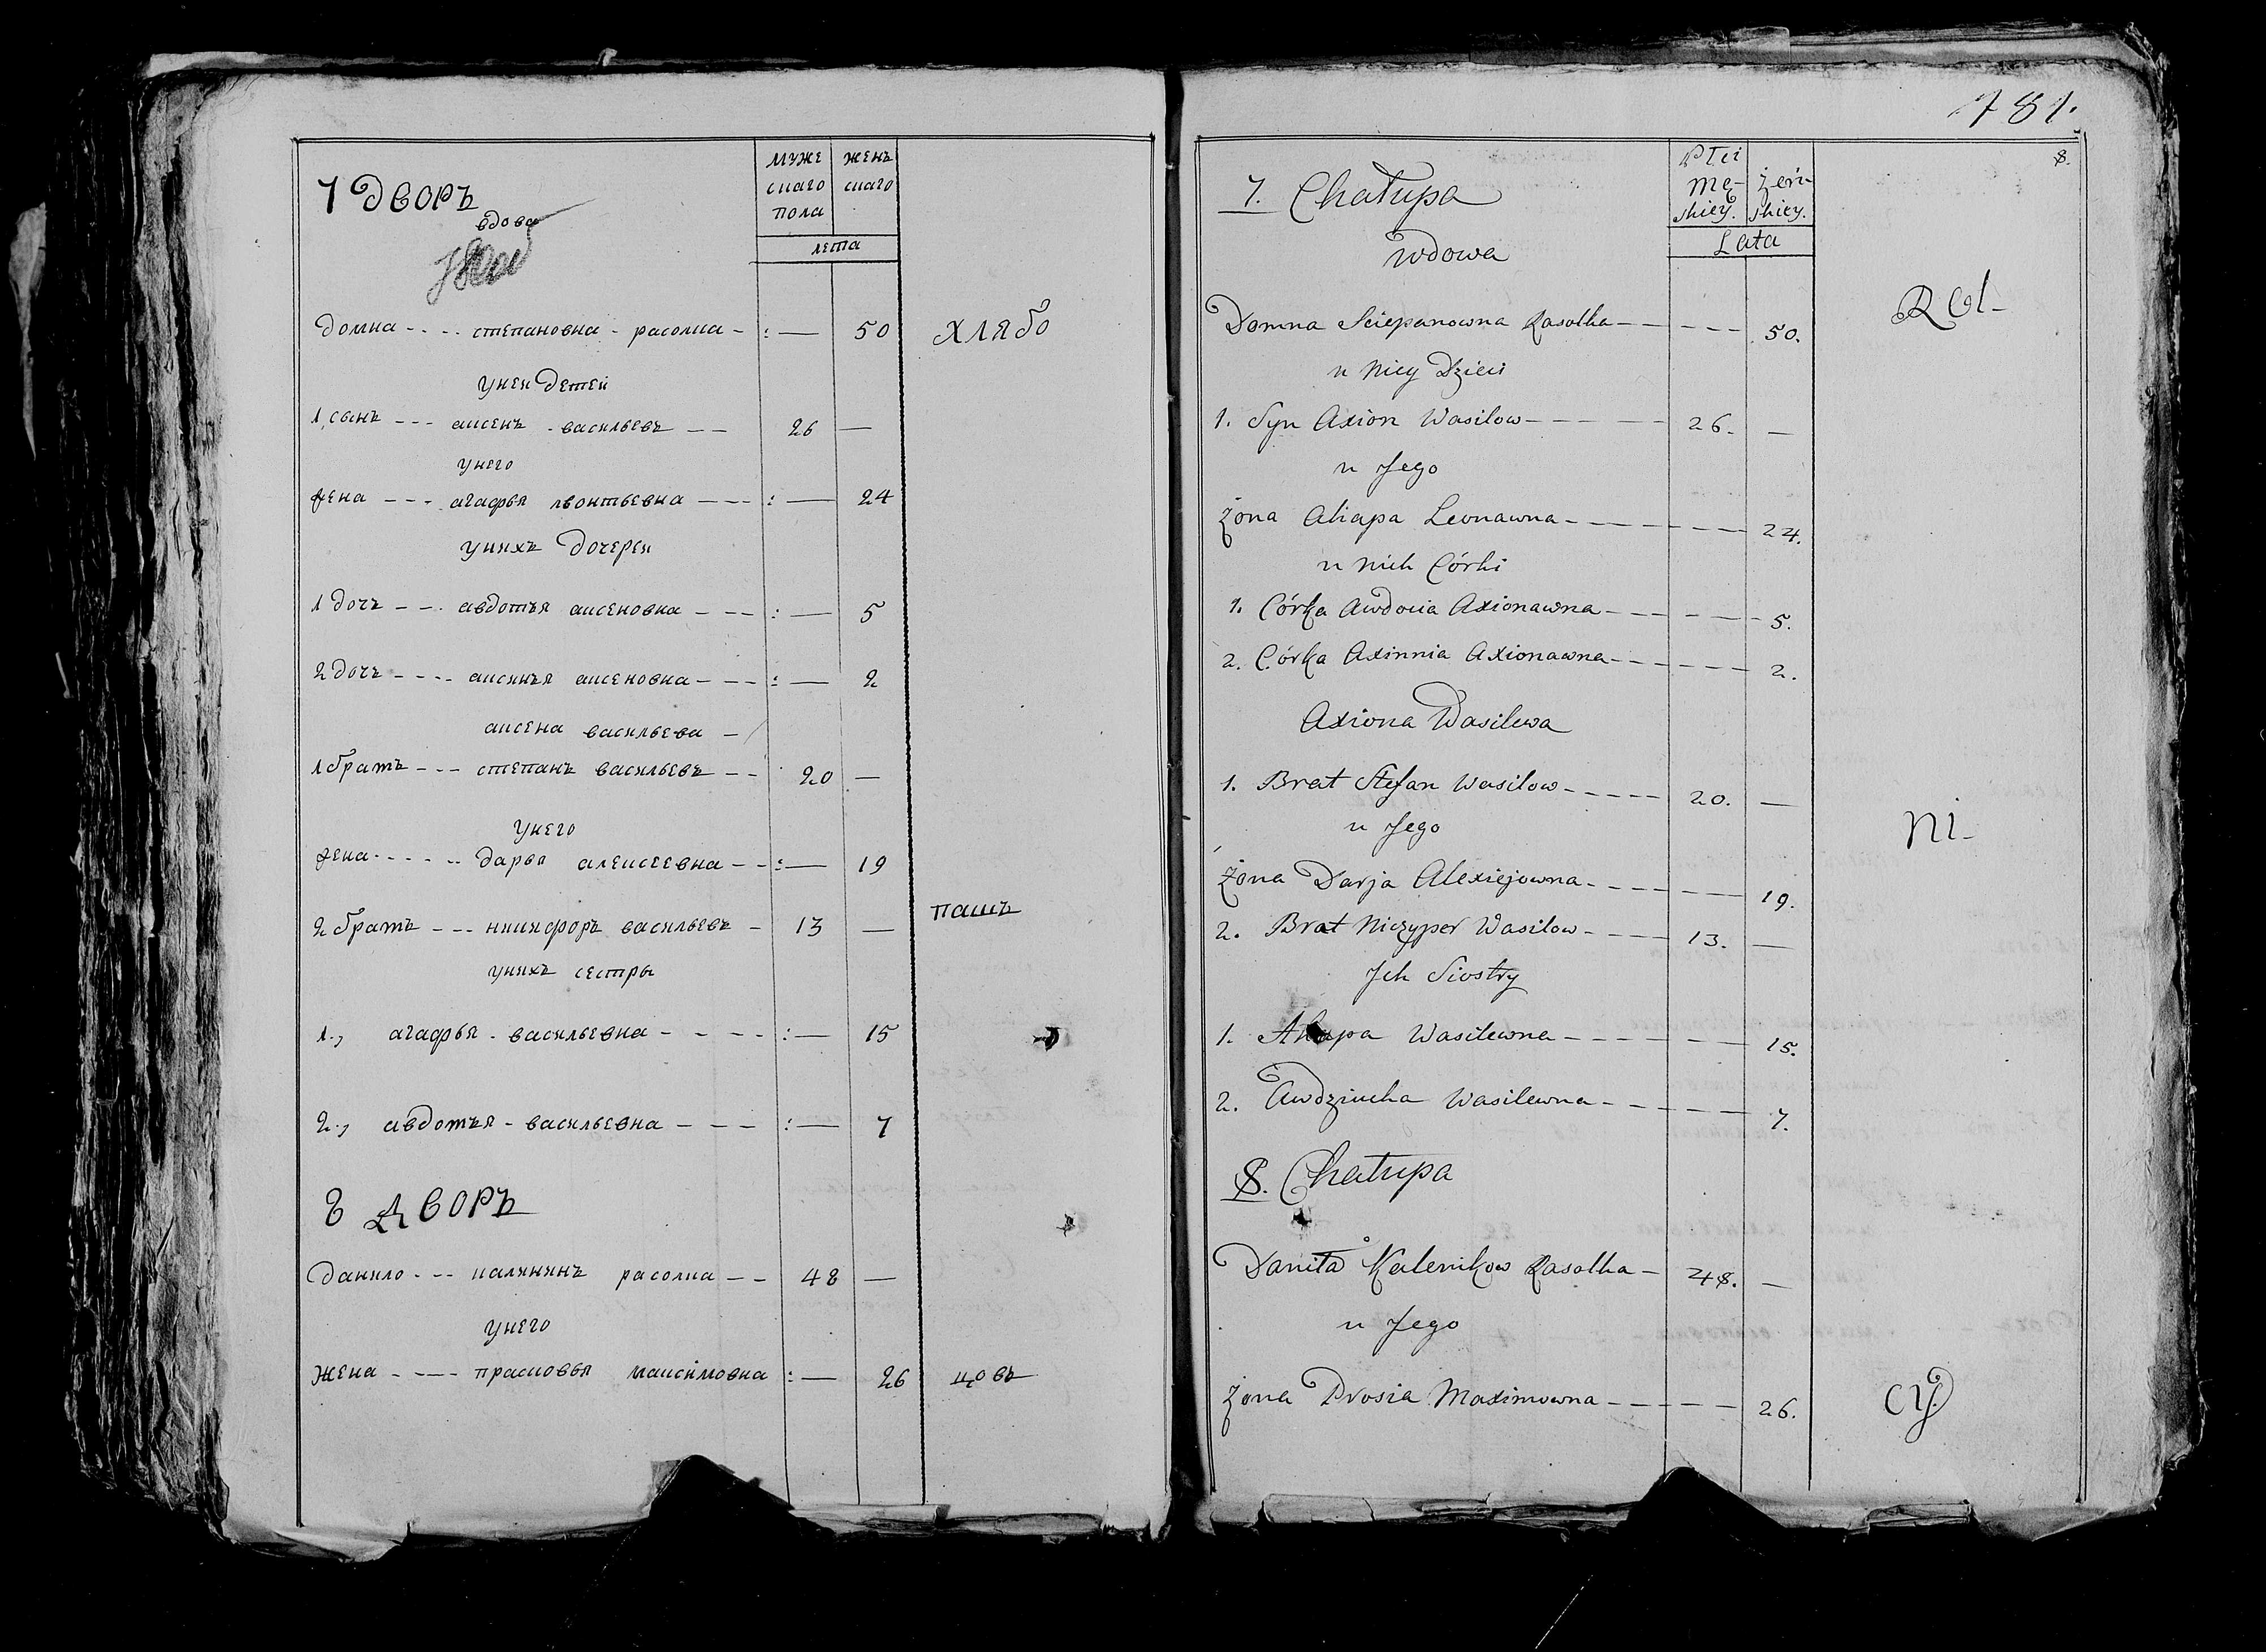 7 ДВОРЪ
вдова
муже
скаго
пола
женъ
скаго
лета
домна - - - - степановна - расолка - : — 50
хлябо
унея детей
1, сынъ - - - аксенъ - васильевъ - - 26 —
унего
жена - - - агафья лвонтьевна - - - : — 24
унихъ дочерей
1 дочъ - - - авдотъя аксеновна - - - : — 5
2 дочъ - - - - аксинъя аксеновна - - - : — 2
аксена васильева -
1 братъ - - - степанъ васильевъ - - 20 —
унего
жена - - - - - дарья алексеевна - - : — 19
пашъ
2 братъ - - - никифоръ васильевъ - 13 —
унихъ сестры
1., агафья - васильевна - - - - : — 15
2., авдотъя - васильевна - - - : — 7
8 ДВОРЪ
данило - - - калининъ расолка - - 48 —
унего
жена - - - - прасковья максимовна : — 26
цовъ
781.
8.
7. Chałupa
Wdowa
Płci
mę-
skiey.
żeń-
skiey.
Lata
Rol-
Domna Sciepanowna Rasołka - - - - - 50.
u Niey Dzieci
1. Syn Axion Wasilow - - - - 26. —
u Jego
Żona Ahapa Leonawna - - - - - - 24.
u nich Córki
1. Córka Awdocia Axionawna - - - - - 5.
2. Córka Axinnia Axionawna - - - - - - 2.
Axiona Wasilewa
1. Brat Stefan Wasilow - - - - - 20. —
u Jego
ni-
Żona Darja Alexiejowna - - - - - - 19.
2. Brat Niczyper Wasilow - - - - 13. —
Jch Siostry
1. Ahapa Wasilewna - - - - - - 15.
2. Awdziucha Wasilewna - - - - - - 7.
8. Chałupa
Daniła Kalenikow Rasołka - 48. —
u Jego
Żona Prosia Maximowna - - - - - 26.
cy